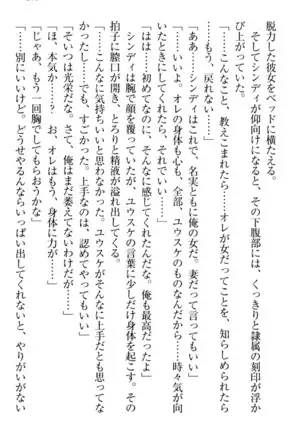 脱力した彼女をベッドに横たえる。
そしてシンディが仰向けになると、その下腹部には、くっきりと隷属の刻印が浮か
び上がっていた。
「……こんなこと、教えこまれたら……オレが女だってことを、知らしめられたら
もう、戻れない……」
「ああ……シンディはこれで、名実ともに俺の女だ。妻だって言ってもいい」
「……いいよ。オレの身体も心も、全部、ユウスケのものなんだから……時々気が向
はは……初めてなのに、そんなに感じてくれたんだな。俺も最高だったよ」
シンディは腕で顔を覆っていたが、ユウスケの言葉に少しだけ身体を起こす。その
拍子に膣口が開き、とろりと精液が溢れ出してくる。
「……こんなに気持ちいいと思わなかった。ユウスケがそんなに上手だとも思ってな
かったし……でも、すごかった。上手なのは、認めてやってもいい」
「そいつは光栄だな。さて、俺はまだ萎えてないわけだが……」
「お、おい……オレはもう、身体に力が……」
「じゃあ、もう一回胸でしてもらおうかな」
「……別にいいけど。どうせやるんならいっぱい出してくれないと、やりがいがない